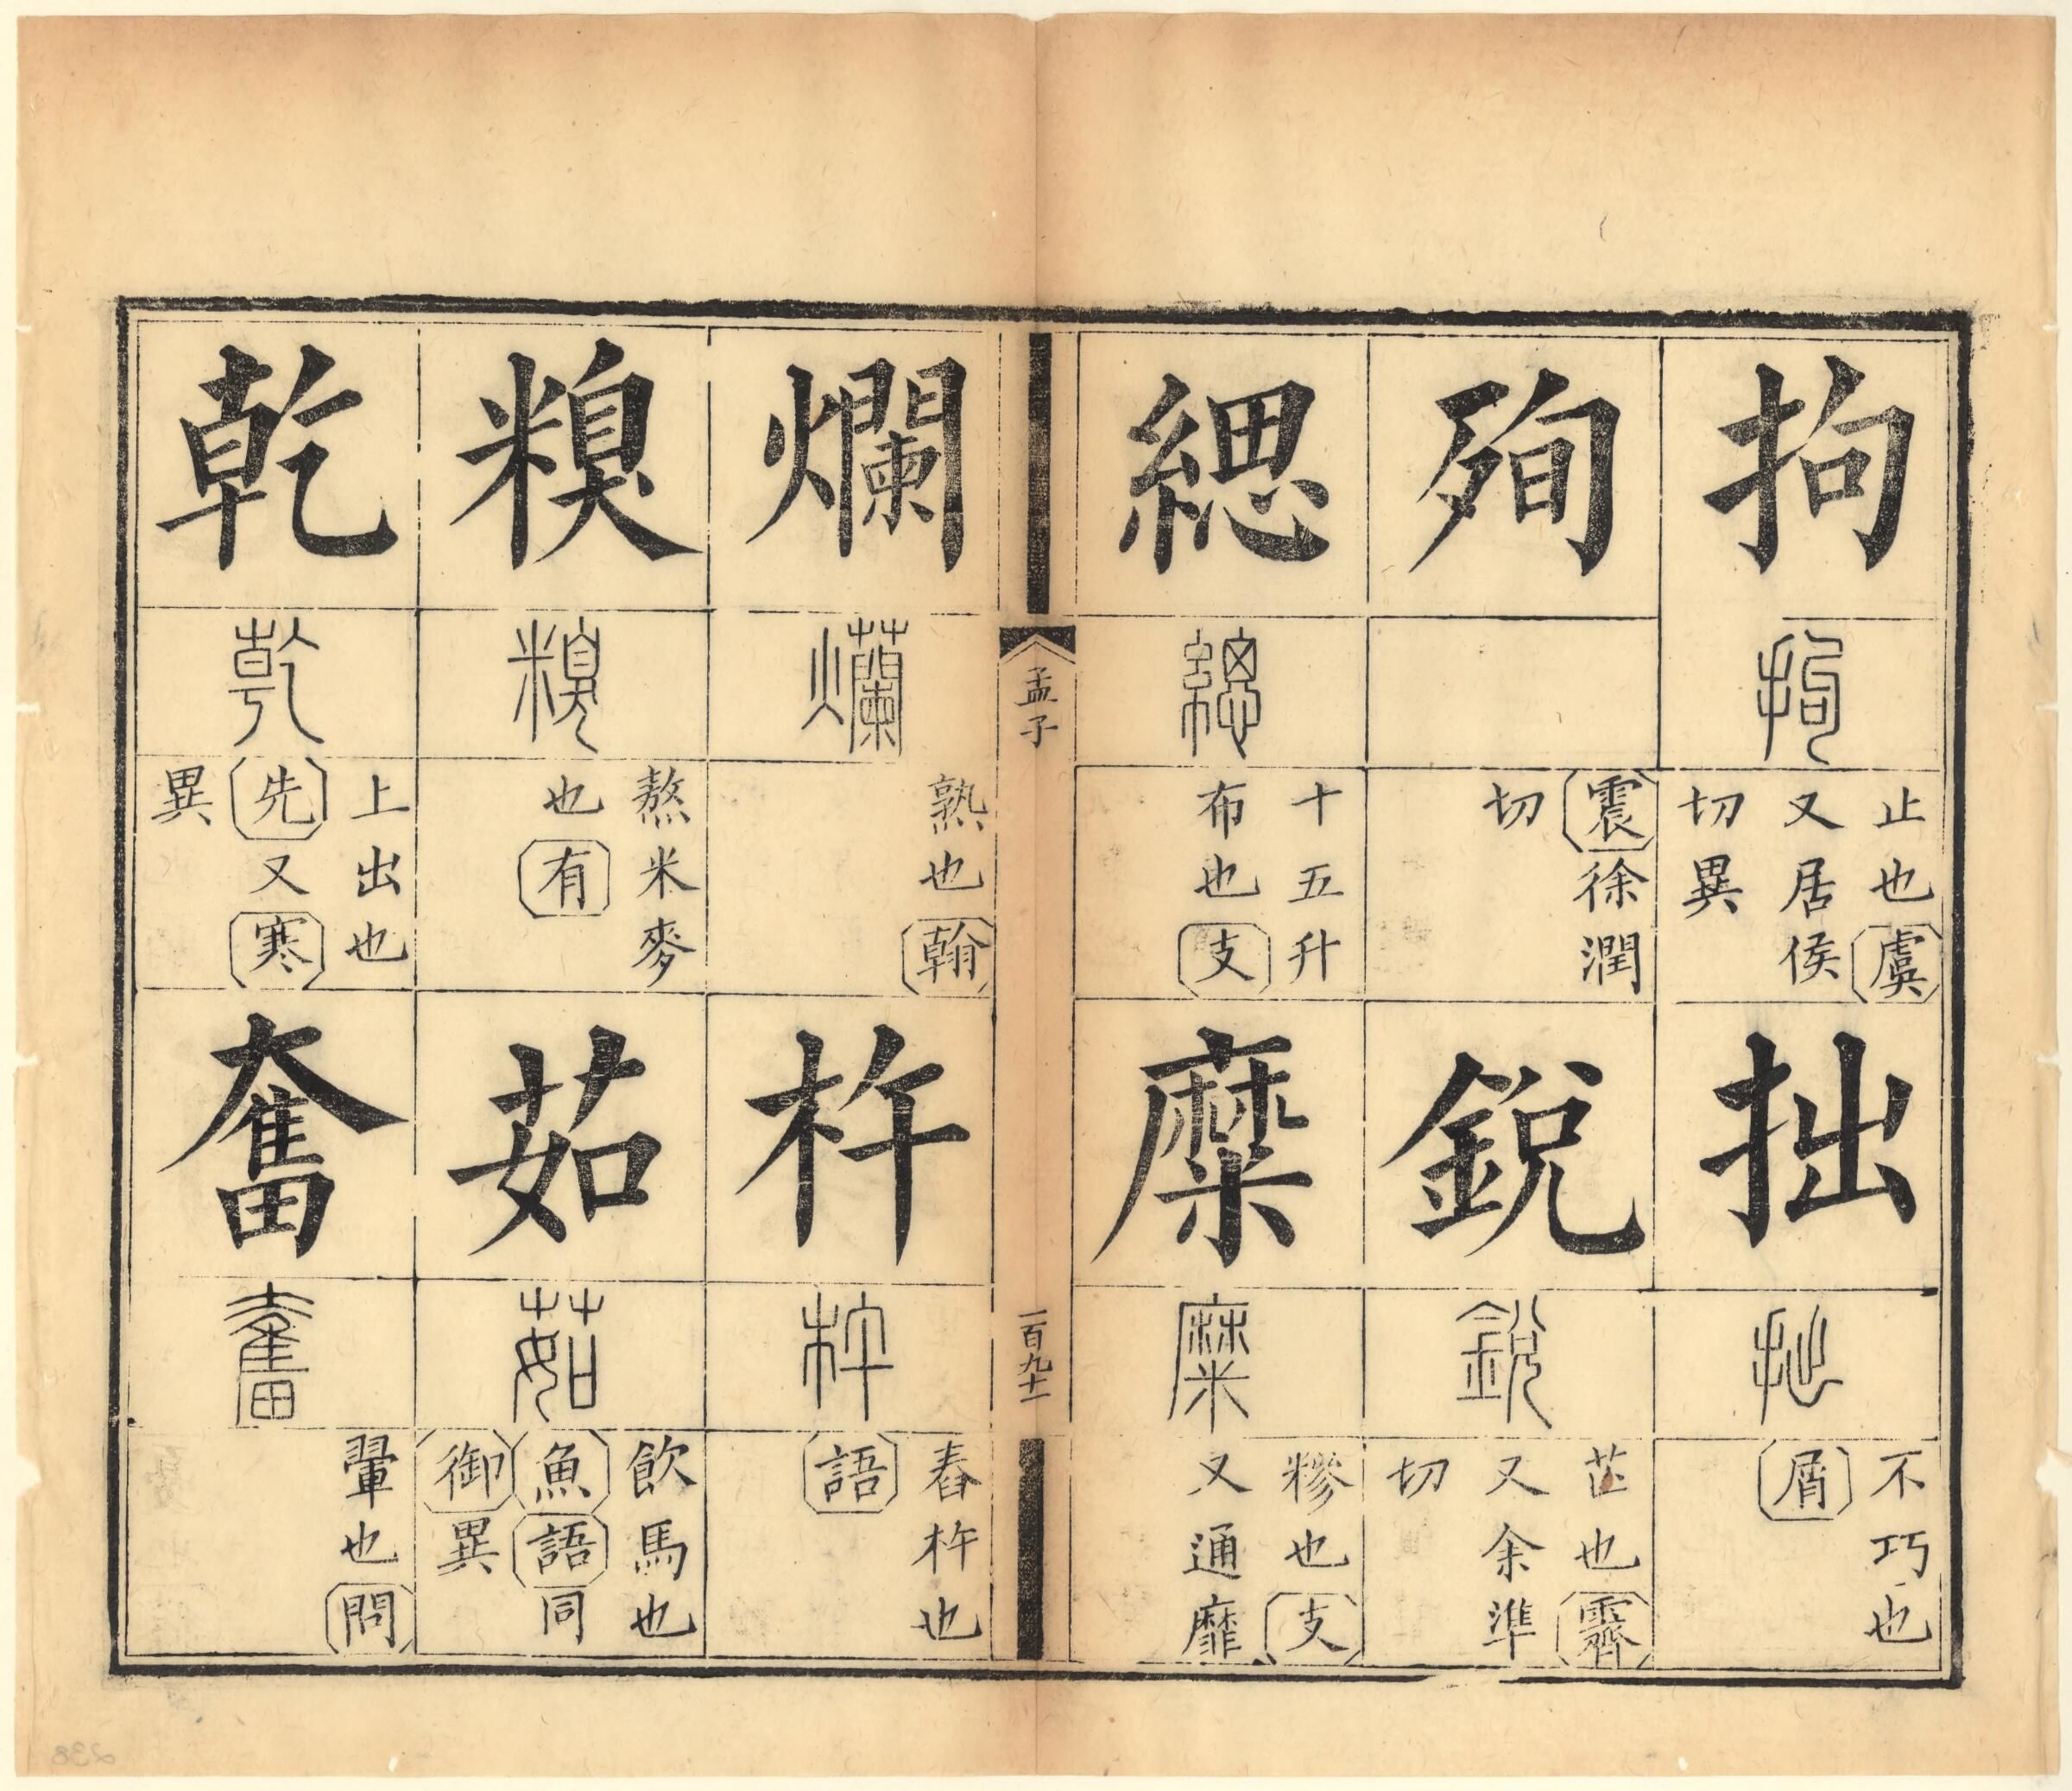 拘
拘
止也虞
又居侯
切異
拙
拙
不巧也
屑
殉
震徐潤
切
銳
銳
芒也霽
又余準
切
緦
緦
十五升
布也支
糜
糜
糝也支
又通靡
孟子
一百九十一
爛
爛
熟也翰
杵
杵
舂杵也
語
糗
糗
熬米麥
也有
茹
茹
飲馬也
魚語同
御異
乾
乾
上出也
先又寒
異
奮
奮
翬也問
238